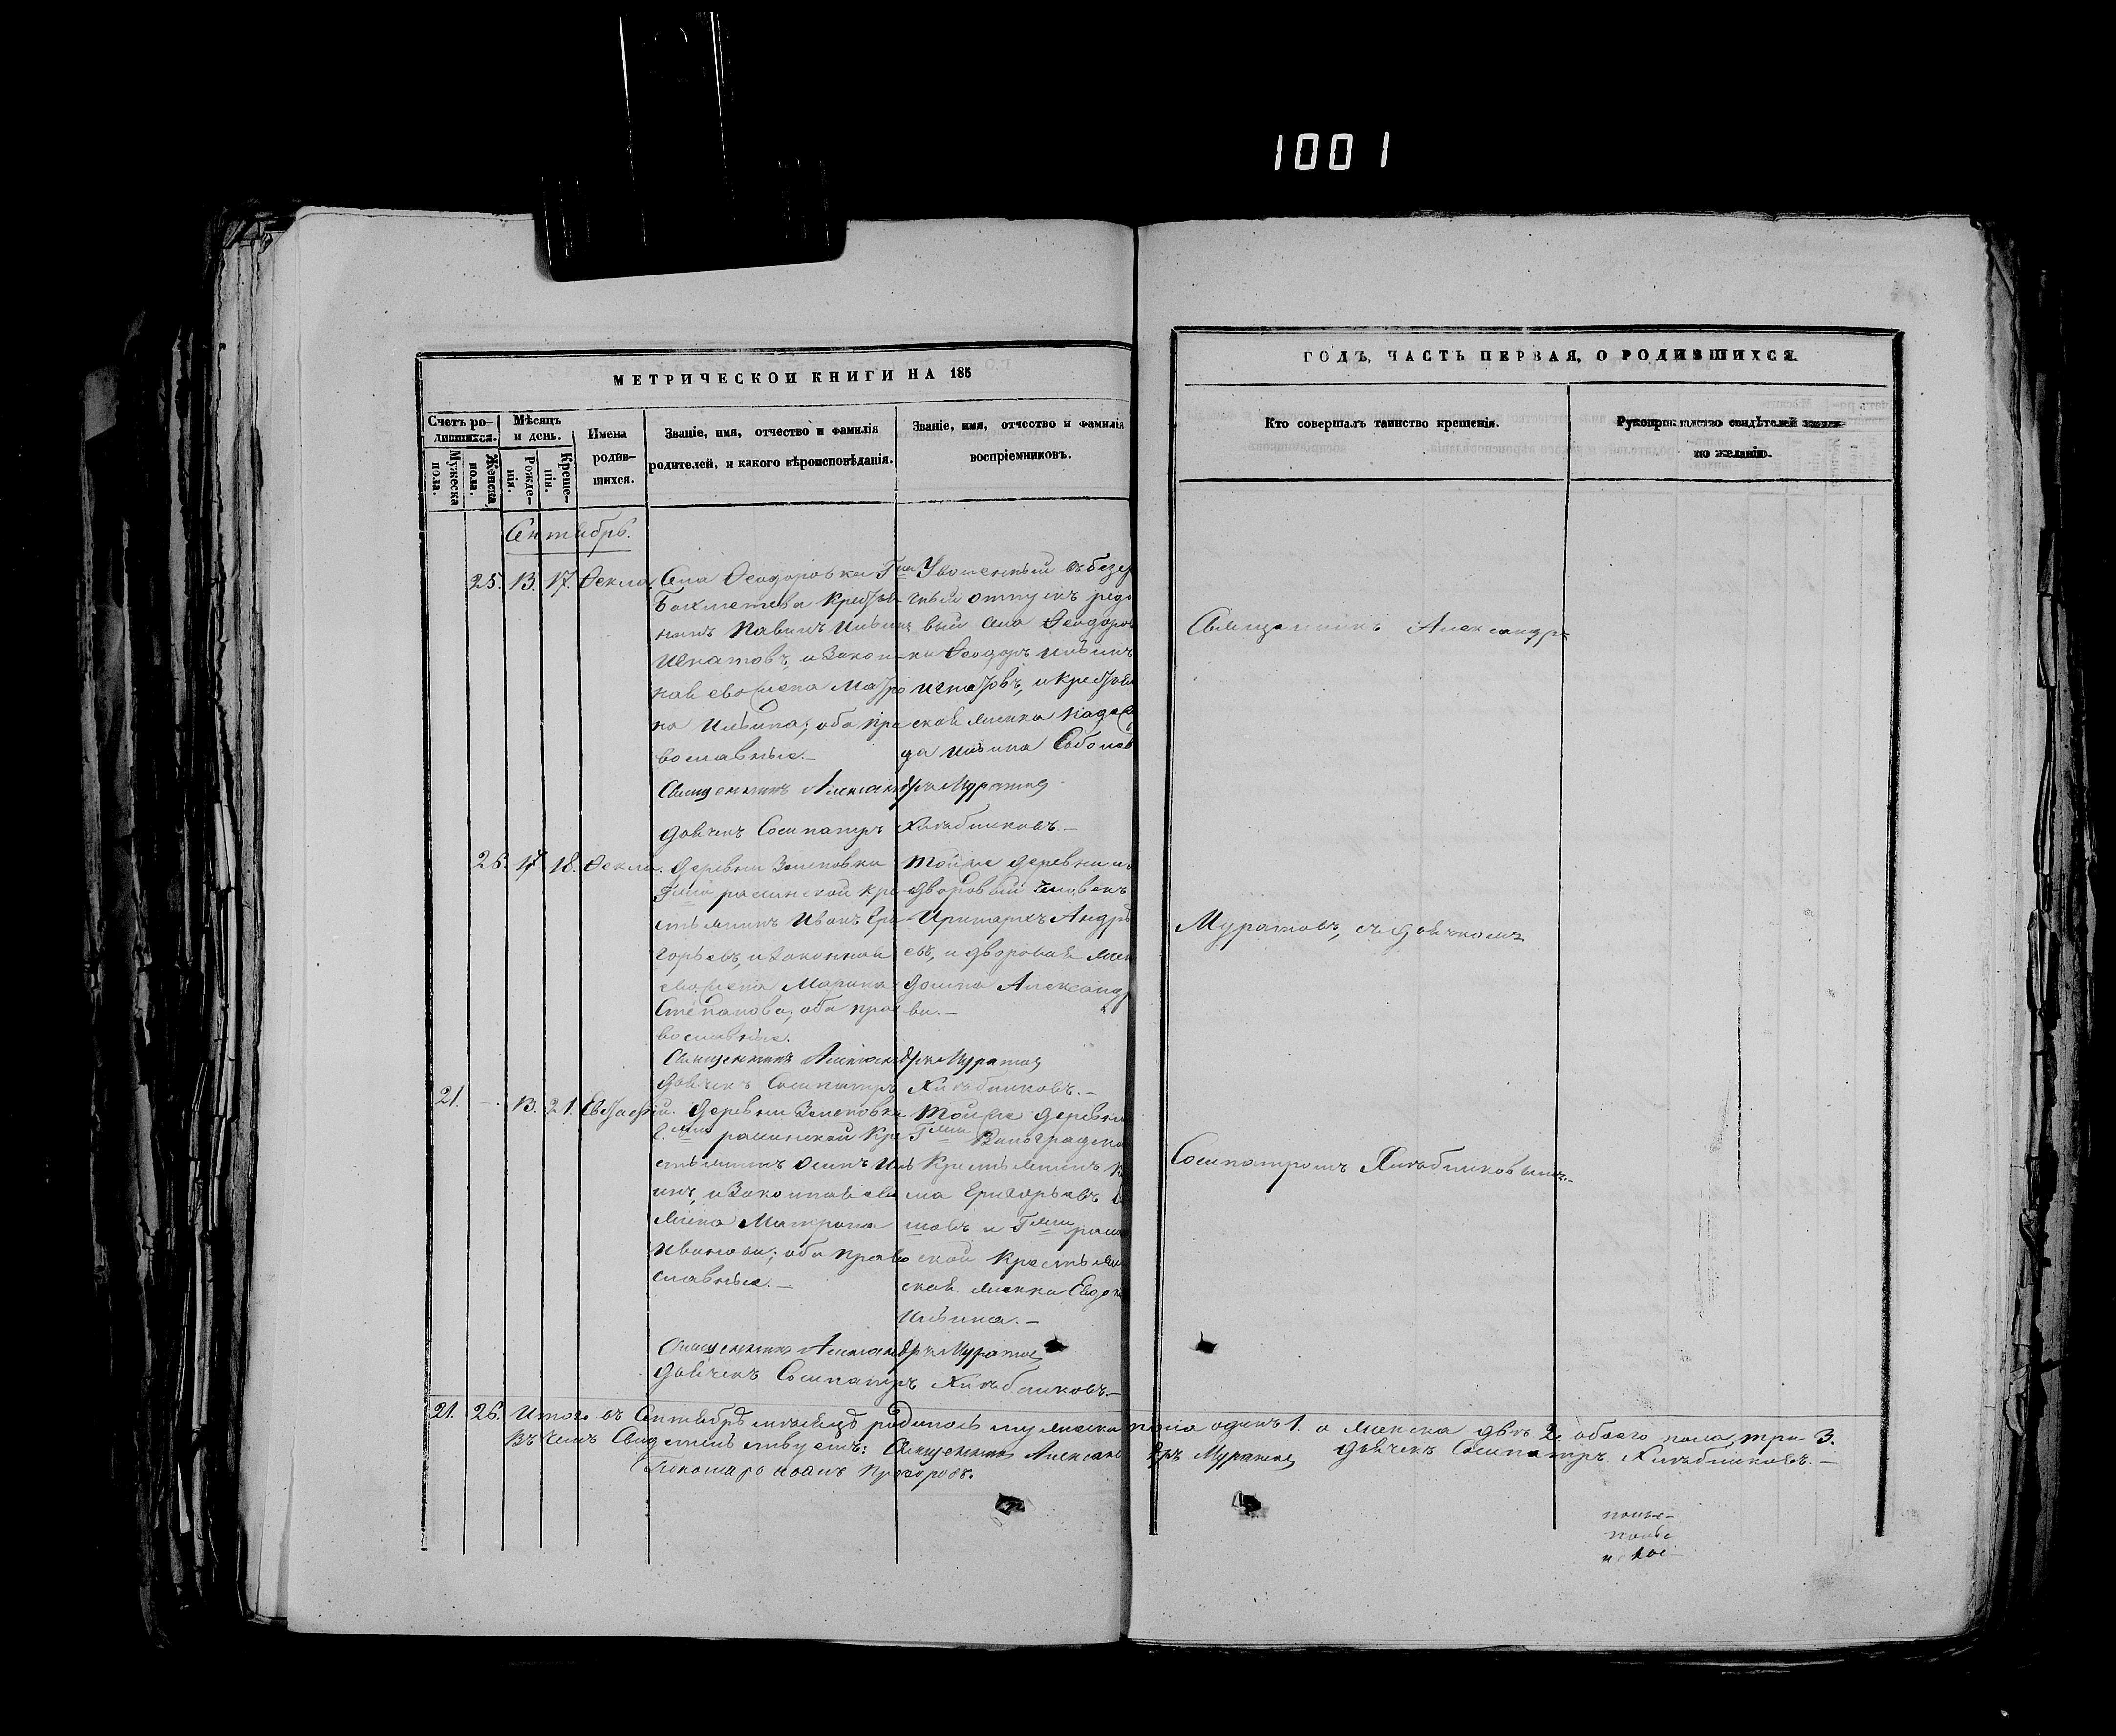 1001
МЕТРИЧЕСКОЙ КНИГИ НА 185
Счетъ ро-
дившихся.
Мужеска
пола.
Женска
пола.
Мѣсяцъ
и день.
Рожде-
нія.
Креще-
нія.
Имена
родив-
шихся.
Званіе, имя, отчество и фамилія
родителей, и какого вѣроисповѣданія.
Званіе, имя, отчество и фамилія
воспріемниковъ.
Сентябрь.
25. 13. 17. Ѳекла
Села Ѳеодоровки Г
Бахметева крестья
нинъ Павилъ Ильинъ
Игнатовъ, и закон-
ная его жена Матро
на Ильина; оба пра
вославные.—
Уволенный въ безср
чный отпускъ рядо
вый села Ѳеодоров
ки Ѳеодоръ Ильинъ
Игнатовъ, и крестьян
ская женка Надеж
да Ильина Соболев
Священникъ Александръ Муратов
Дьячекъ Сосипатръ Хлѣбниковъ.—
26. 17. 18. Ѳекла.
Деревни Зиновки
кре
стьянинъ Иванъ Гри
горьевъ, и законная
его жена Марина
Степанова; оба пра
вославные.
Той же деревни
дворовый человекъ
Андре
евъ, и дворовая жен
Домна Александр
ва.—
Священникъ Александръ Муратов
Дьячекъ Сосипатръ Хлѣбниковъ.—
21. —. 13. 21. Евстафій.
Деревни Зиновки
кре
стьянинъ Осипъ Иль
инъ, и законная его
жена Матрона
Иванова; оба право
славные.—
Той же деревни
Виноградска
крестьянинъ
ма Григорьевъ
и
ской крестьян
ская женка Евдок
Ильина.—
Священникъ Александръ Муратов
Дьячекъ Сосипатръ Хлѣбниковъ.—
21. 26. Итого въ Сентябрѣ мѣсяцѣ родилось мужеска пола одинъ 1. а женска двѣ 2. обоего пола три 3.
Въ чемъ свидетельствуемъ: Священникъ Александръ Муратов Дьячекъ Сосипатръ Хлѣбниковъ.—
Пономарь Иоанъ Прохоровъ.
ГОДЪ, ЧАСТЬ ПЕРВАЯ, О РОДИВШИХСЯ.
Кто совершалъ таинство крещенія.
Рукоприкладство свидѣтелей записи
по желанію.
Священникъ Александръ
Муратовъ, съ дьячкомъ
Сосипатромъ Хлѣбниковымъ.—